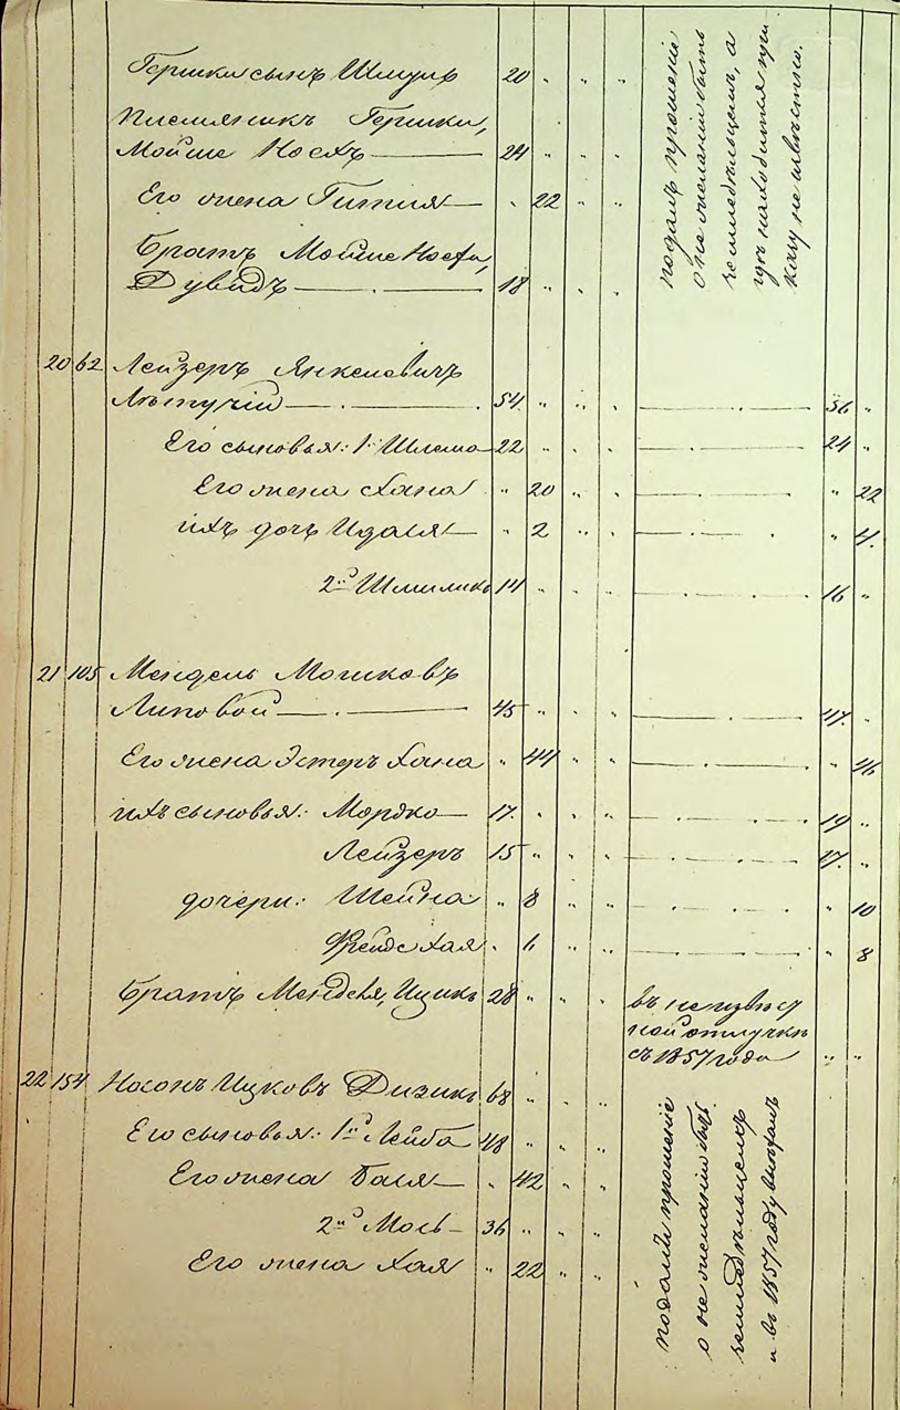 Гершки сынъ Шмуль 20 " " "
Племянникъ Гершки,
Мойше Носехъ 24 " " "
Его жена Гитля " 22 " "
Братъ Мойше Носеха,
Дувидъ 18 " " "
подалъ прошеніе
о не желаніи быть
земледѣльцемъ, а
гдѣ находится ни
кому не извѣстно.
20 62 Лейзеръ Янкелевичъ
Лѣтучій 54 " " " 56 "
Его сыновья: 1й Шлема 22 " " " 24 "
Его жена Хана " 20 " " " 22
ихъ дочь Идаля " 2 " " " 4.
2й Шмиликъ 14 " " " 16 "
21 105 Мендель Мошковъ
Липовой 45 " " " 47. "
Его жена Эстеръ Хана " 44 " " " 46
ихъ сыновья: Мордко 17. " " " 19 "
Лейзеръ 15 " " " 17. "
дочери: Шейна " 8 " " " 10
Фрейде Хая " 6 " " " 8
Братъ Менделя, Ицикъ 28 " " "
въ неизвѣст
ной отлучкѣ
съ 1857 года " "
22 154 Носонъ Ицковъ Дизикъ 68 " " "
Его сыновья: 1й Лейба 48 " " "
Его жена Бася " 42 " "
2й Мось 36 " " "
Его жена Хая " 22 " "
подали прошеніе
о не желаніи быть
земледѣльцемъ
и въ 1857 году